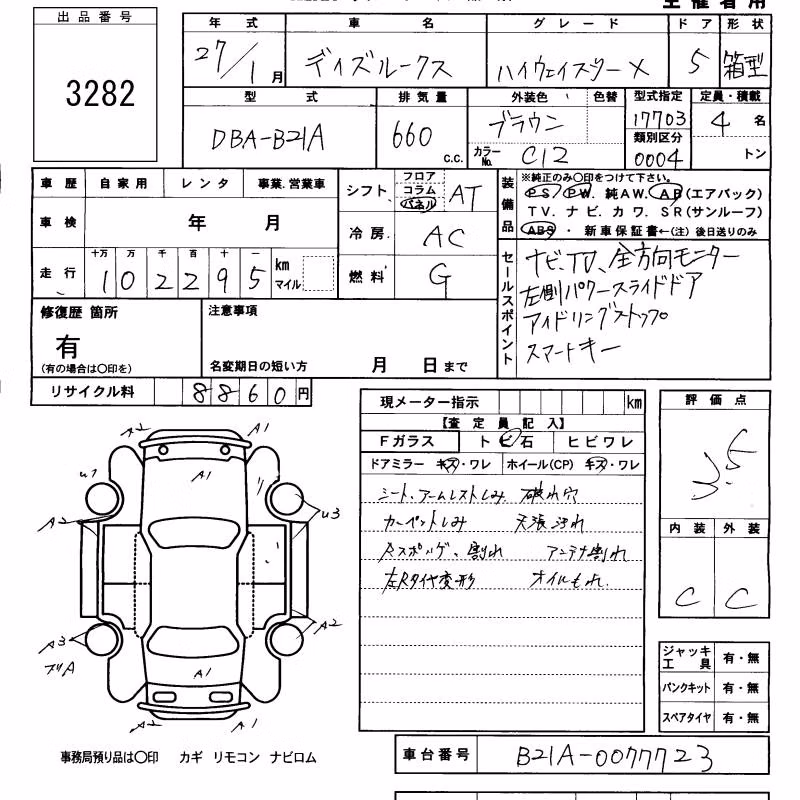 主催者用
出品番号
3282
年式 車名 グレード ドア 形状
27/1月 デイズルークス ハイウェイスターX 5 箱型
型式 排気量 外装色 色替 型式指定 定員・積載
DBA-B21A 660 c.c. ブラウン 17703 4名
カラーNo. C12 類別区分 0004 トン
車歴 自家用 レンタ 事業.営業車
シフト フロア コラム パネル AT
装備品 ※純正のみ○印をつけて下さい。
PS. PW. 純AW. AB(エアバック)
TV. ナビ. カワ. SR(サンルーフ)
ABS ・ 新車保証書←(注) 後日送りのみ
車検 年 月
冷房 AC
走行 十万 万 千 百 十 一
102295 km マイル
燃料 G
セールスポイント
ナビ、TV、全方向モニター
左側パワースライドドア
アイドリングストップ
スマートキー
修復歴 箇所
有
(有の場合は○印を)
注意事項
名変期日の短い方 月 日まで
リサイクル料 8860円
現メーター指示 km
【査定員記入】
Fガラス トビ石 ヒビワレ
ドアミラー キズ・ワレ ホイール(CP) キズ・ワレ
シート、アームレストしみ 破れ穴
カーペットしみ 天張汚れ
Rスポイラー、割れ アンテナ割れ
左Rタイヤ変形 オイルもれ.
評価点
3.5
内装 外装
C C
A2 A1
A1
U1
U3
A2
A3
A2
ズリA
A1
A2 A1
ジャッキ工具 有・無
パンクキット 有・無
スペアタイヤ 有・無
事務局預り品は○印 カギ リモコン ナビロム
車台番号 B21A-0077723